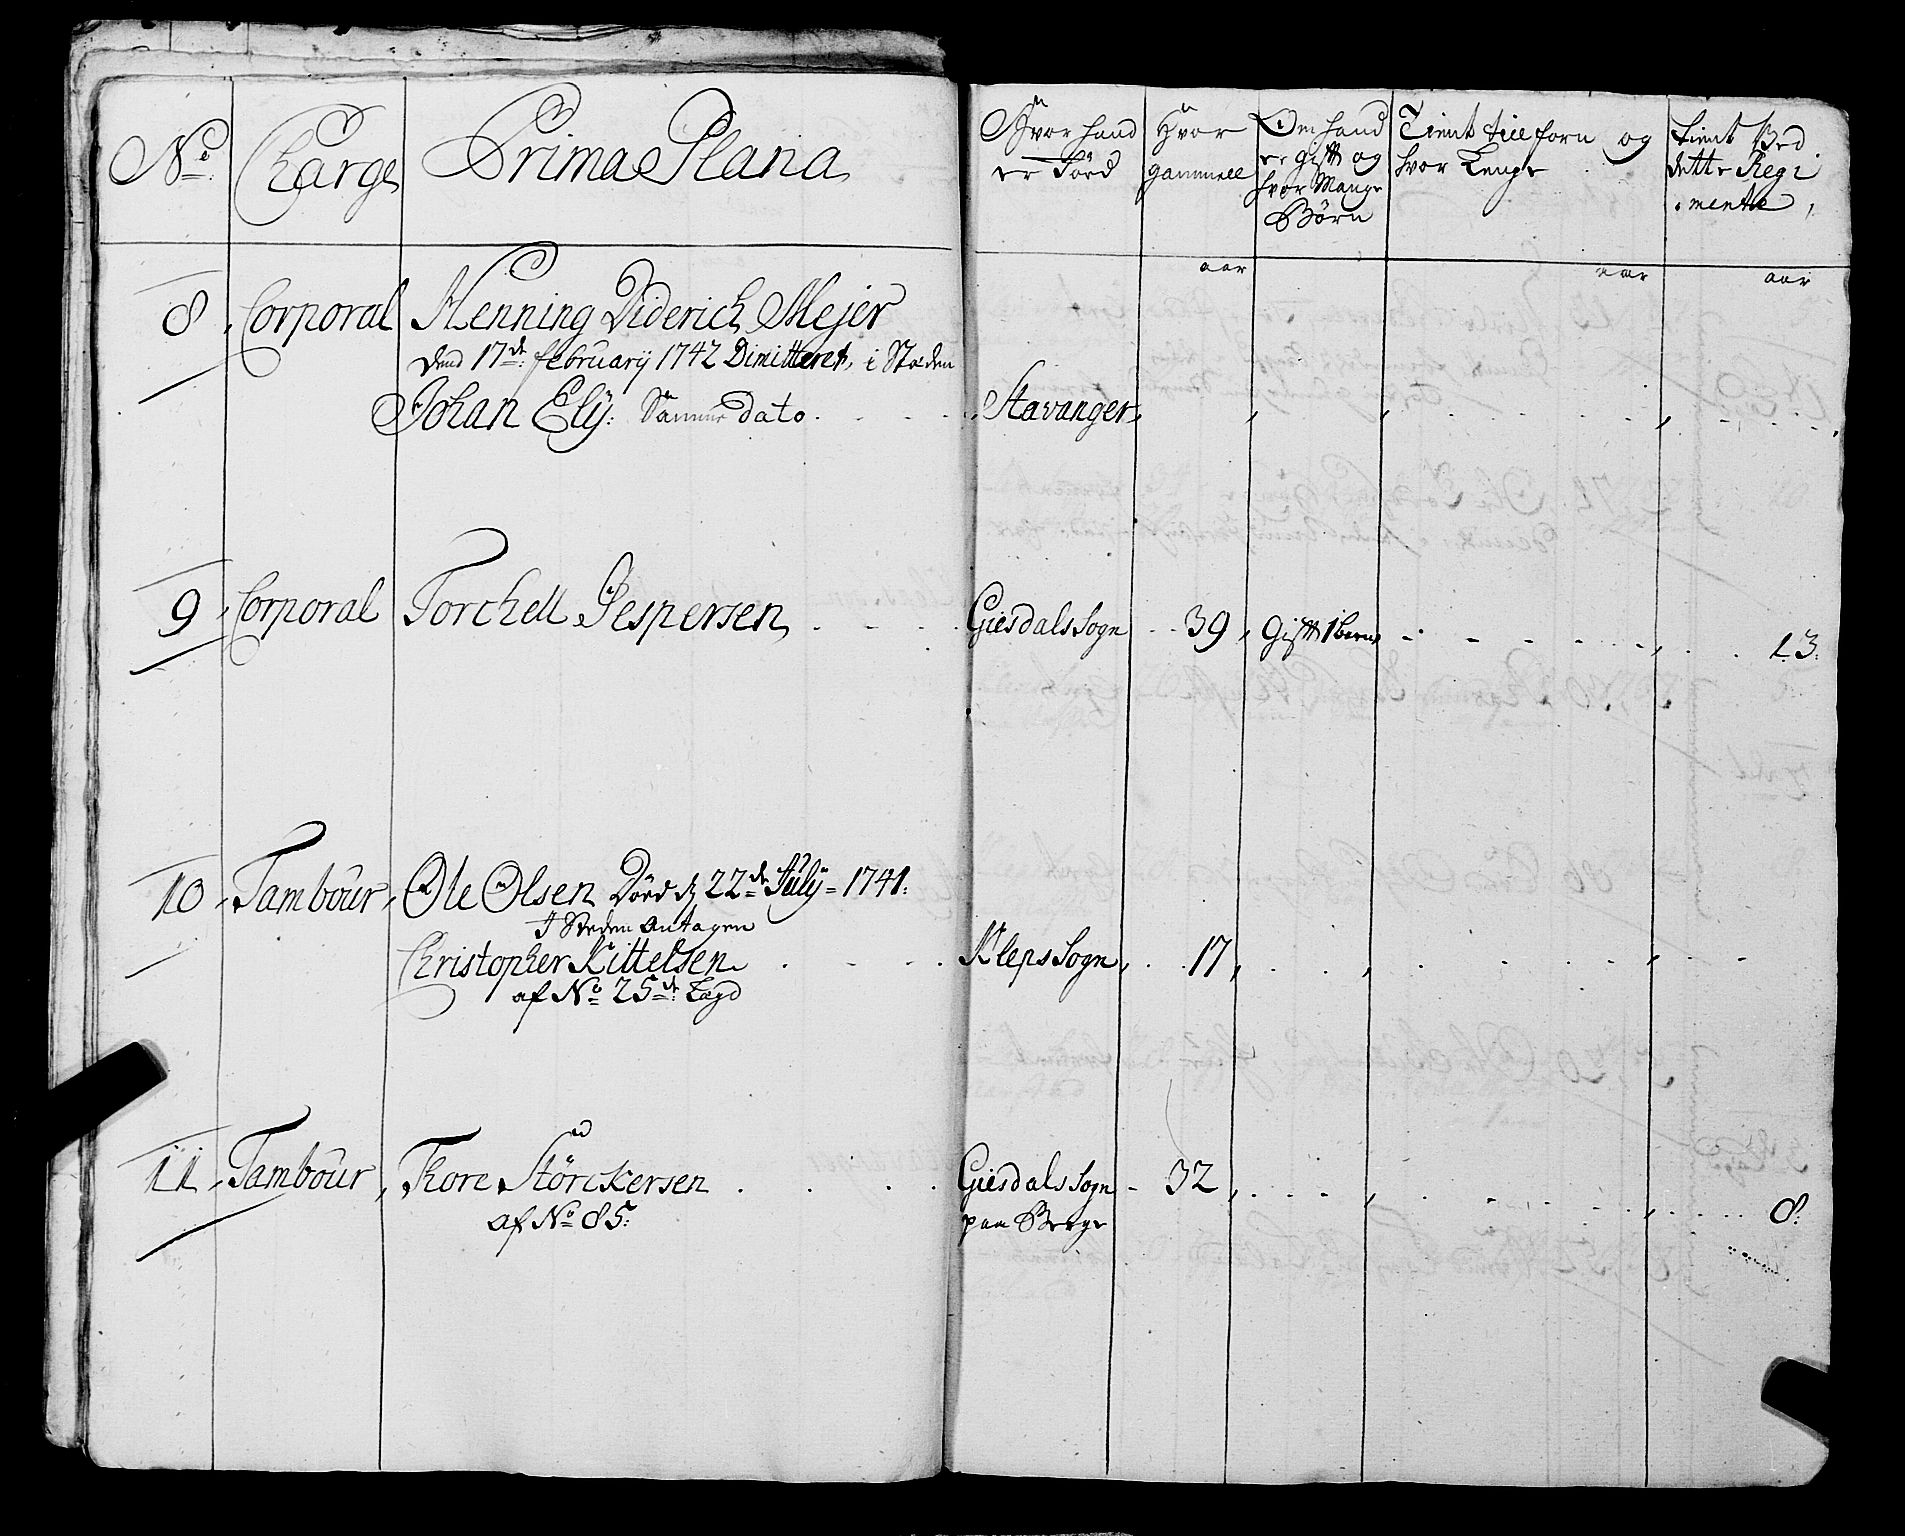 No Charge Prima Plana
Hvor hand er Föed
Hvor gammell
Om hand er gift og hvor Mange Börn
Tient tillforn og hvor Lenge
tient Ved dette Regimentte
aar aar aar
8 Corporal Henning Diderich Mejer
dend 17de februarij 1742 Dimitteret, i Steden
Johan Elÿ: Samme dato Stavanger
9 Corporal Torchell Jespersen Giesdals Sogn 39 gift 1 barn 13
10 Tambour Ole Olsen Döed d 22de Julÿ 1741:
I Steden Antagen
Christopher Kittelsen Kleps Sogn 17
af No 25de Lægd
11 Tambour Thore Störckersen Giesdals Sogn 32 8:
af No 85: paa Berge